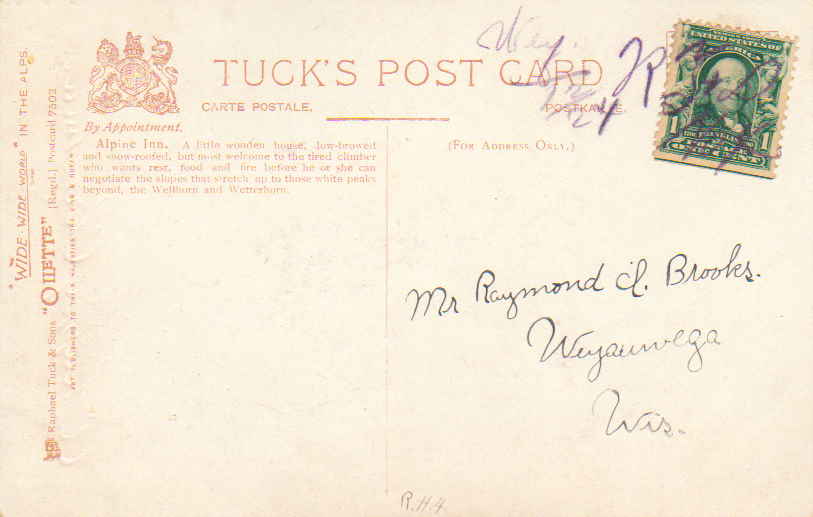 TUCK'S POST CARD
CARTE POSTALE,
POSTKARTE.
By Appointment.
(FOR ADDRESS ONLY.)
Alpine Inn. A little wooden house, low-browed
and snow-roofed, but most welcome to the tired climber
who wants rest, food and fire before he or she can
negotiate the slopes that stretch up to those white peaks
beyond, the Wellhorn and Wetterhorn.
"WIDE-WIDE-WORLD" IN THE ALPS.
Raphael Tuck & Sons' "OILETTE" [Regd.] Postcard 7502
ART PUBLISHERS TO THEIR MAJESTIES THE KING & QUEEN
Wey.
UNITED STATES OF
1
1
ONE CENT
Mr Raymond H. Brooks.
Weyauwega
Wis.
R.H.4